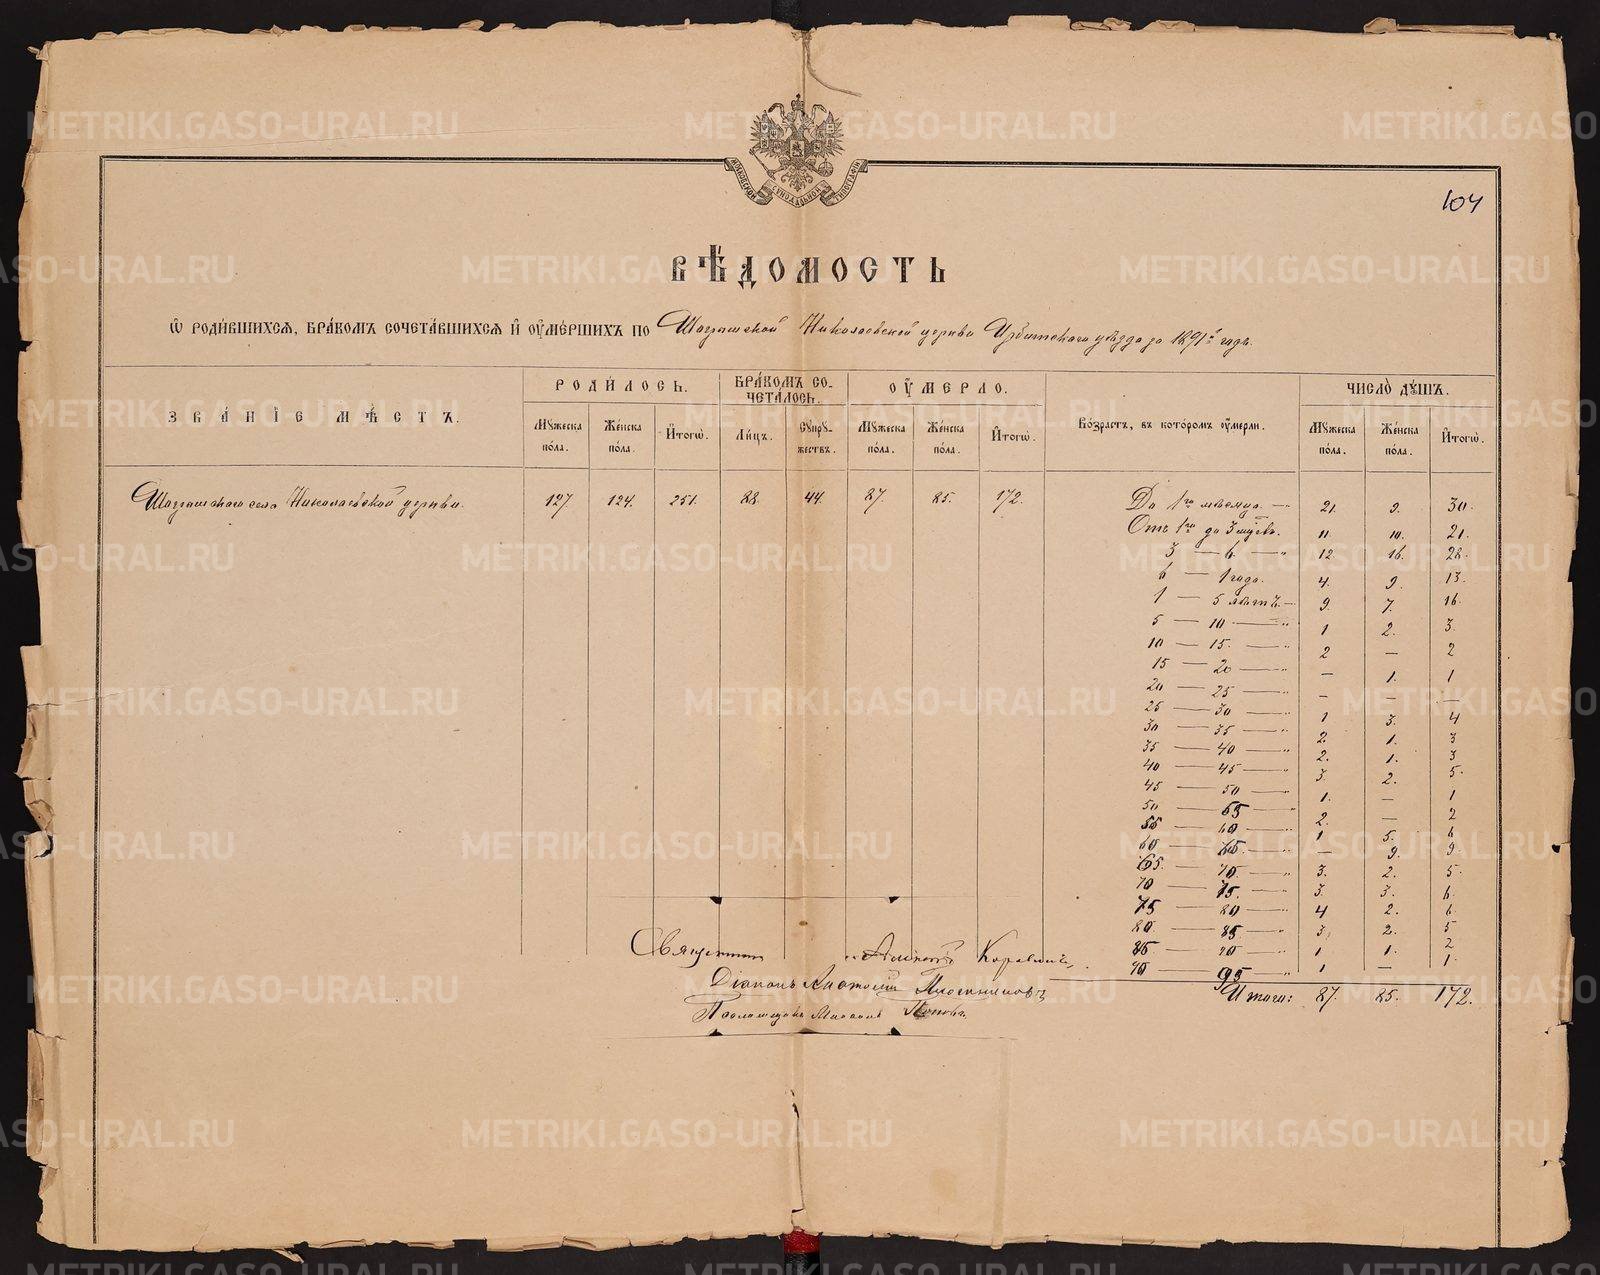 METRIKI.GASO-URAL.RU
МОСКОВСКОЙ СѴНОДАЛЬНОЙ ТИПОГРАФІИ
104
ВѢДОМОСТЬ
Ѡ РОДИВШИХСЯ, БРАКОМЪ СОЧЕТАВШИХСЯ И ОУМЕРШИХЪ ПО Шогришской Николаевской церкви Ирбитскаго уѣзда за 1891й годъ.
ЗВАНІЕ МѢСТЪ. РОДИЛОСЬ. БРАКОМЪ СО-ЧЕТАЛОСЬ. ОУМЕРЛО. Возрастъ, въ которомъ оумерли. ЧИСЛО ДУШЪ.
Мужеска пола. Женска пола. Итогѡ. Лицъ. Супружествъ. Мужеска пола. Женска пола. Итогѡ. Мужеска пола. Женска пола. Итогѡ.
Шогришскаго села Николаевской церкви. 127. 124. 251. 88. 44. 87. 85. 172.
До 1го мѣсяца. — 21. 9. 30.
Отъ 1го до 3 мѣсѣв. 11. 10. 21.
3 — 6 — " 12. 16. 28.
6 — 1 года. 4. 9. 13.
1 — 5 лѣтъ. — 9. 7. 16.
5 — 10 — " 1 2. 3.
10 — 15. — " 2 — 2
15 — 20 — " — 1. 1
20 — 25 — " — — —
25 — 30 — " 1 3. 4
30 — 35 — " 2. 1. 3
35 — 40 — " 2. 1. 3
40 — 45 — " 3. 2. 5.
45 — 50 — " 1. — 1
50 — 55 — " 2. — 2
55 — 60 — " 1 5. 6
60 — 65. — " — 9. 9.
65. — 70. — " 3. 2. 5.
70 — 75. — " 3. 3. 6.
75 — 80 — " 4 2. 6
80 — 85 — " 3. 2. 5
85 — 90 — " 1 1. 2
90 — 95 — " 1 — 1.
Итого: 87. 85. 172.
Священник
Діаконъ Анатолій
Псаломщикъ Поповъ